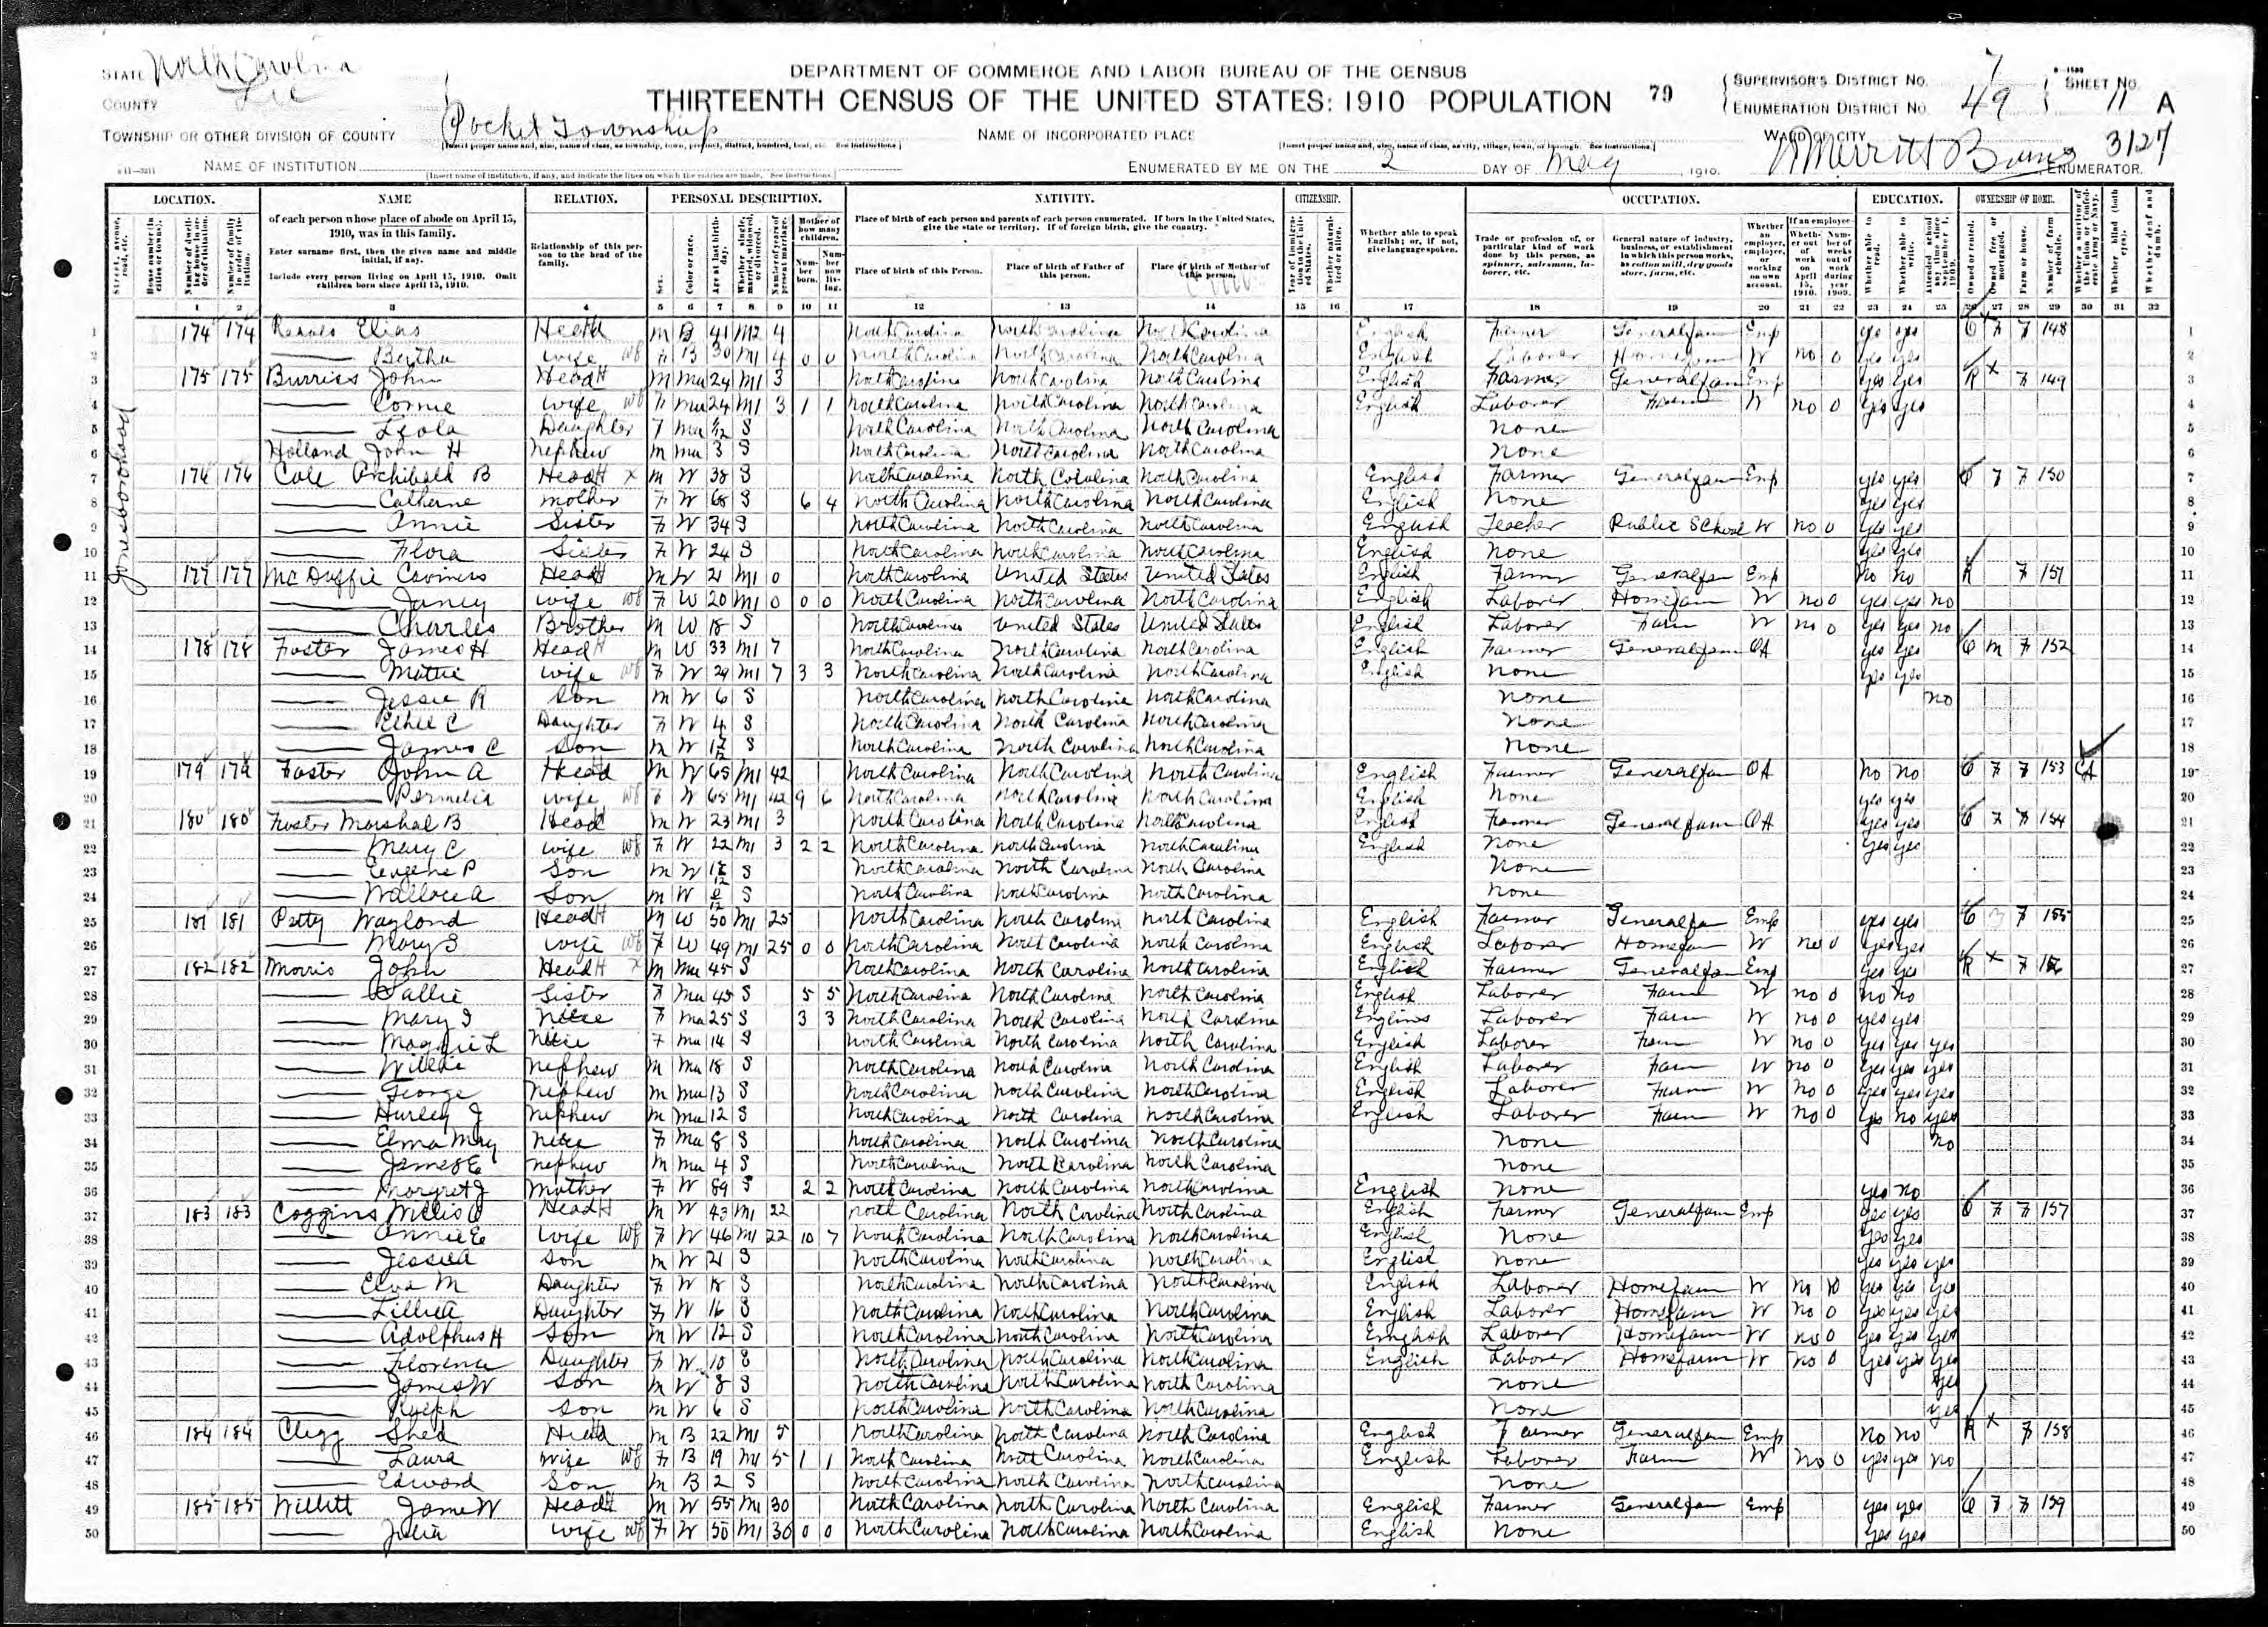 STATE North Carolina
COUNTY Lee
DEPARTMENT OF COMMERCE AND LABOR BUREAU OF THE CENSUS
THIRTEENTH CENSUS OF THE UNITED STATES: 1910 POPULATION
79
SUPERVISOR'S DISTRICT No. 7
ENUMERATION DISTRICT No. 49
SHEET No. 11 A
TOWNSHIP OR OTHER DIVISION OF COUNTY Pocket Township
NAME OF INCORPORATED PLACE
WARD OF CITY
3127
NAME OF INSTITUTION
ENUMERATED BY ME ON THE 2 DAY OF May, 1910.
Merritt Burns, ENUMERATOR.
LOCATION. NAME RELATION. PERSONAL DESCRIPTION. NATIVITY. CITIZENSHIP. OCCUPATION. EDUCATION. OWNERSHIP OF HOME.
of each person whose place of abode on April 15, 1910, was in this family.
Enter surname first, then the given name and middle initial, if any.
Include every person living on April 15, 1910. Omit children born since April 15, 1910.
Relationship of this person to the head of the family.
Mother of how many children.
Place of birth of each person and parents of each person enumerated. If born in the United States, give the state or territory. If of foreign birth, give the country.
Place of birth of this Person. Place of birth of Father of this person. Place of birth of Mother of this person.
Whether able to speak English; or, if not, give language spoken.
Trade or profession of, or particular kind of work done by this person, as spinner, salesman, laborer, etc.
General nature of industry, business, or establishment in which this person works, as cotton mill, dry goods store, farm, etc.
Whether an employer, employee, or working on own account.
1 2 3 4 5 6 7 8 9 10 11 12 13 14 15 16 17 18 19 20 21 22 23 24 25 26 27 28 29 30 31 32
Jonesboro road
1 174 174 Elias Head M B 41 M2 4 North Carolina North Carolina North Carolina English Farmer General farm Emp yes yes O F F 148
2 Bertha wife F B 30 M1 4 0 0 North Carolina North Carolina North Carolina English Laborer Home farm W no 0 yes yes
3 175 175 Burriss John Head M Mu 24 M1 3 North Carolina North Carolina North Carolina English Farmer General farm Emp yes yes R F 149
4 wife F Mu 24 M1 3 1 1 North Carolina North Carolina North Carolina English Laborer Farm W no 0 yes yes
5 Leola Daughter F Mu S North Carolina North Carolina North Carolina None
6 Holland John H Nephew M Mu 3 S North Carolina North Carolina North Carolina None
7 176 176 Cole Archibald B Head M W 38 S North Carolina North Carolina North Carolina English Farmer General farm Emp yes yes O F F 150
8 Catherne mother F W 68 S 6 4 North Carolina North Carolina North Carolina English None yes yes
9 Annie Sister F W 34 S North Carolina North Carolina North Carolina English Teacher Public School W no 0 yes yes
10 Flora Sister F W 24 S North Carolina North Carolina North Carolina English None yes yes
11 177 177 McDuffie Head M W 21 M1 0 North Carolina United States United States English Farmer General farm Emp No No R F 151
12 Janey wife F W 20 M1 0 0 0 North Carolina North Carolina North Carolina English Laborer Home farm W no 0 yes yes no
13 Charles Brother M W 18 S North Carolina United States United States English Laborer Farm W no 0 yes yes no
14 178 178 Foster James H Head M W 33 M1 7 North Carolina North Carolina North Carolina English Farmer General farm OA yes yes O M F 152
15 Mattie wife F W 29 M1 7 3 3 North Carolina North Carolina North Carolina English None yes yes
16 Jessie R Son M W 6 S North Carolina North Carolina North Carolina None no
17 Ethel C Daughter F W 4 S North Carolina North Carolina North Carolina None
18 James C Son M W S North Carolina North Carolina North Carolina None
19 179 179 Foster John A Head M W 65 M1 42 North Carolina North Carolina North Carolina English Farmer General farm OA No No O F F 153 CA
20 Permelia wife F W 65 M1 42 9 6 North Carolina North Carolina North Carolina English None yes yes
21 180 180 Foster Marshal B Head M W 23 M1 3 North Carolina North Carolina North Carolina English Farmer General farm OA yes yes O F F 154
22 Mary C wife F W 22 M1 3 2 2 North Carolina North Carolina North Carolina English None yes yes
23 Eugene P Son M W S North Carolina North Carolina North Carolina None
24 Wallace A Son M W S North Carolina North Carolina North Carolina None
25 181 181 Petty Wayland Head M W 50 M1 25 North Carolina North Carolina North Carolina English Farmer General farm Emp yes yes O F 155
26 Mary S wife F W 49 M1 25 0 0 North Carolina North Carolina North Carolina English Laborer Home farm W no 0 yes yes
27 182 182 Morris John Head M Mu 45 S North Carolina North Carolina North Carolina English Farmer General farm Emp yes yes R F 156
28 Sallie Sister F Mu 45 S 5 5 North Carolina North Carolina North Carolina English Laborer Farm W no 0 no no
29 Mary I Niece F Mu 25 S 3 3 North Carolina North Carolina North Carolina English Laborer Farm W no 0 yes yes
30 Maggie L Niece F Mu 14 S North Carolina North Carolina North Carolina English Laborer Farm W no 0 yes yes yes
31 Willie Nephew M Mu 18 S North Carolina North Carolina North Carolina English Laborer Farm W no 0 yes yes yes
32 George Nephew M Mu 13 S North Carolina North Carolina North Carolina English Laborer Farm W no 0 yes yes yes
33 Hurley J Nephew M Mu 12 S North Carolina North Carolina North Carolina English Laborer Farm W no 0 yes no yes
34 Elma May Niece F Mu 8 S North Carolina North Carolina North Carolina None no
35 James E Nephew M Mu 4 S North Carolina North Carolina North Carolina None
36 Margret J Mother F W 89 S 2 2 North Carolina North Carolina North Carolina English None yes no
37 183 183 Coggins Willis O Head M W 43 M1 22 North Carolina North Carolina North Carolina English Farmer General farm Emp yes yes O F F 157
38 Annie E wife F W 46 M1 22 10 7 North Carolina North Carolina North Carolina English None yes yes
39 Jessie A Son M W 21 S North Carolina North Carolina North Carolina English None yes yes yes
40 Elva M Daughter F W 18 S North Carolina North Carolina North Carolina English Laborer Home farm W no 10 yes yes yes
41 Lillie A Daughter F W 16 S North Carolina North Carolina North Carolina English Laborer Home farm W no 0 yes yes yes
42 Adolphus H Son M W 12 S North Carolina North Carolina North Carolina English Laborer Home farm W no 0 yes yes yes
43 Florence Daughter F W 10 S North Carolina North Carolina North Carolina English Laborer Home farm W no 0 yes yes yes
44 James W Son M W 8 S North Carolina North Carolina North Carolina None yes
45 Ralph Son M W 6 S North Carolina North Carolina North Carolina None yes
46 184 184 Clegg Shed Head M B 22 M1 5 North Carolina North Carolina North Carolina English Farmer General farm Emp No No R F 158
47 Laura Wife F B 19 M1 5 1 1 North Carolina North Carolina North Carolina English Laborer Farm W no 0 yes yes no
48 Edward Son M B 2 S North Carolina North Carolina North Carolina None
49 185 185 Willett Jame W Head M W 55 M1 30 North Carolina North Carolina North Carolina English Farmer General farm Emp yes yes O F F 159
50 Julia wife F W 50 M1 30 0 0 North Carolina North Carolina North Carolina English None yes yes